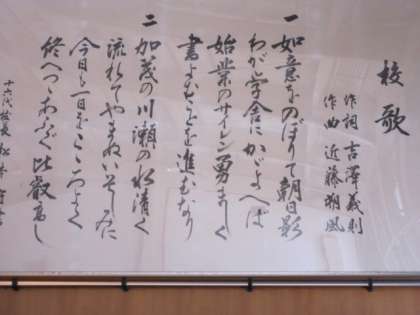 校歌
作詞 吉澤義則
作曲 近藤朔風
一 如意をのぼりて朝日影
わが学舎にかがよへば
始業のサイレン勇ましく
書よむ を進むなり
二 加茂の川瀬の水清く
流れてやまぬいそしみに
今日も一日をこころよく
終へつつあふぐ比叡高し
十六代校長 松本